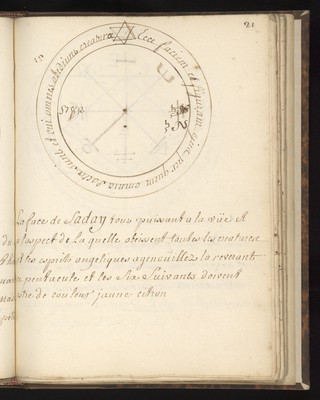 21
Ecce faciem et figuram eius per quem omnia facta sunt et cui omnes obediunt creaturæ
La face de Saday tous puissant a la vüe et
laspect de la quelle obeissent toutes les creatures
et les esprits angeliques agenouillez la reverent
pentacule et les six suivants doivent
estre de couleur jaune citron